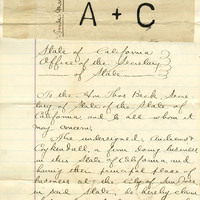 A + C
State of California
Office of the Secretary
of State
To the Hon Thos Beck Secre
tary of State of the State of
California and to all whom it
may concern:
The undersigned
Coykendall, a firm doing business
in this State of California and
having their principal place of
business at the City of San Jose
in said State, do hereby claim